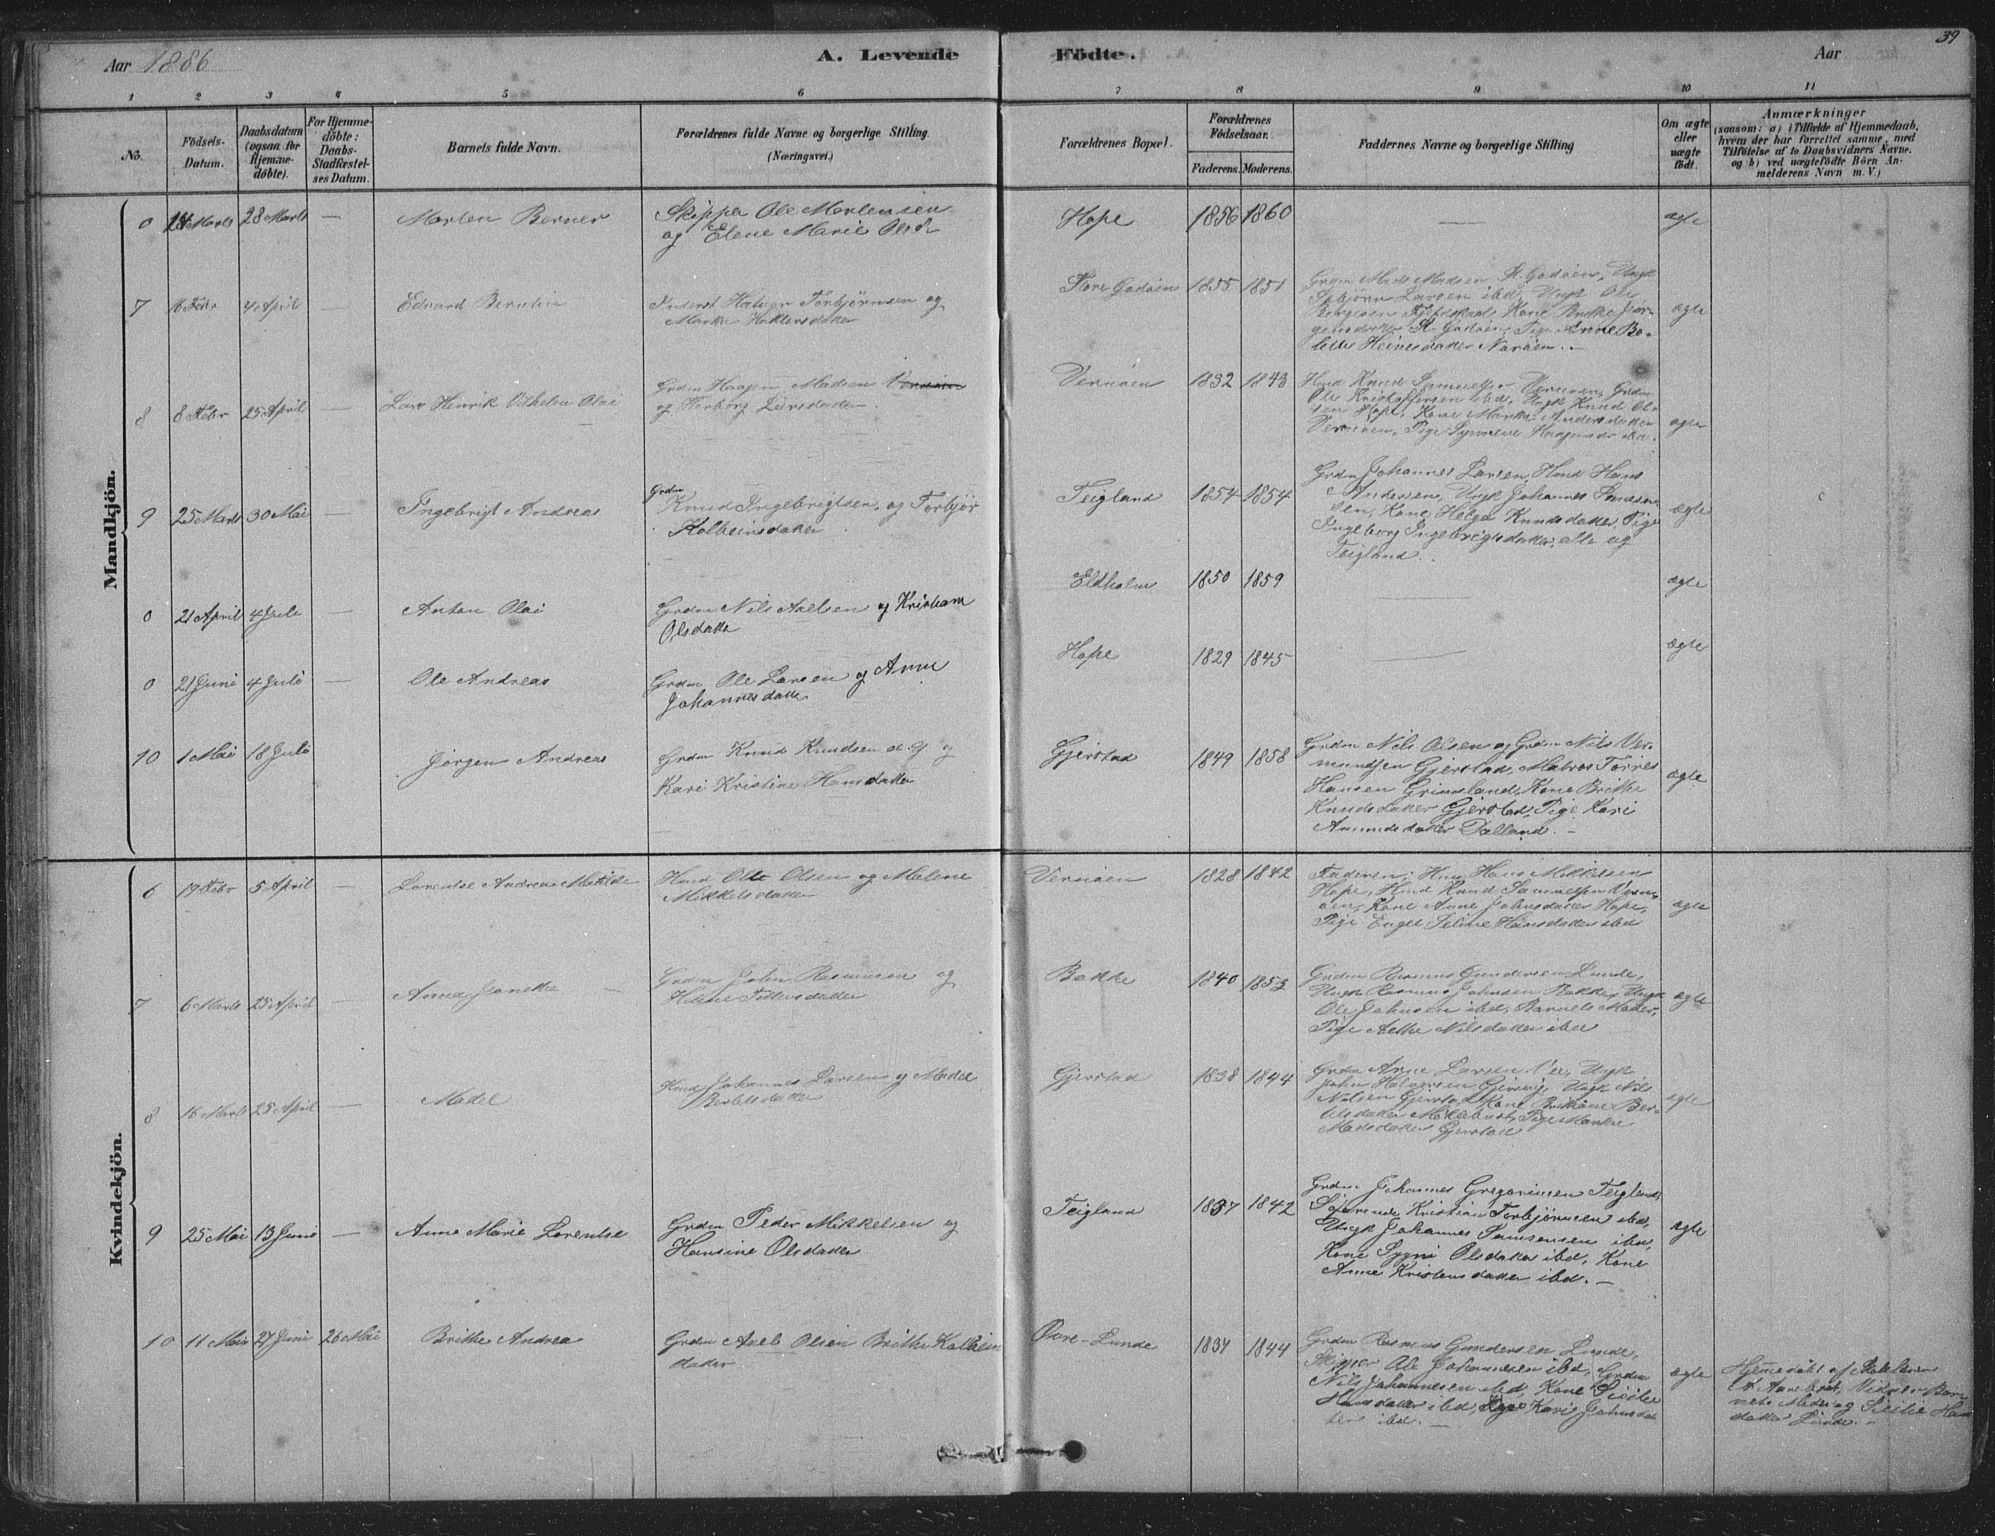 39
Aar 1886
A. Levende
Födte.
Aar
1 2 3 4 5 6 7 8 9 10 11
No.
Födsels-
Datum.
Daabsdatum
(ogsaa for
Hjemme-
döbte).
For Hjemme-
döbte:
Daabs-
Stadfæstel-
ses Datum.
Barnets fulde Navn.
Forældrenes fulde Navne og borgerlige Stilling.
(Næringsvei.)
Forældrenes Bopæl.
Forældrenes
Födselsaar.
Faderens. Moderens.
Faddernes Navne og borgerlige Stilling
Om ægte
eller
uægte
födt.
Anmærkninger
(saasom: a) i Tilfælde af Hjemmedaab,
hvem der har forrettet samme, med
Tilföielse af to Daabsvidners Navne.
og b) ved uægtefödte Börn An-
melderens Navn m. V.)
Mandkjön.
0 Marts 28 Marts — Morten Berner
Skipper Ole Mortensen
og Elene Marie Olsd
Hope 1856 1860 — ægte
7 16 Febr 4 April Edvard Berntin
Halvor Torbjörnsen og
Store Godöen 1855 1851
Grdm Mads Madsen St. Godöen, Ungk
Larsen ibd, Ungk Ole
Kone
St. Godöen, Pige Anne Bo-
lette Heinesdatter
ægte
8 8 Febr 25 April Lars Henrik Vilhelm Olai
Grdm Haagen Madsen
og Larsdatter
Vernöen 1832 1843
Hmd Knud Vernöen, Grdm
Ole Kristoffersen ibd, Ungk Knud Ol-
sen Hope, Kone Andersdatter
Vernöen, Pige Synneve
ægte
9 25 Marts 30 Mai Ingebrigt Andreas
Grdm
Knud Ingebrigtsen og Torbjör
Kolbeinsdatter
Teigland 1854 1854
Grdm Johannes Larsen, Hmd Hans
Andersen, Ungk Johannes Samson-
sen, Kone Helga Knudsdatter, Pige
Ingeborg Ingebrigtsdatter, alle og
Teigland.
ægte
0 21 April 4 Juli — Anton Olai
Grdm Nils Axelsen og
Olsdatter
Eldholm 1850 1859 — ægte
0 21 Juni 4 Juli — Ole Andreas
Grdm Ole Larsen og Anne
Johannesdatter
Hope 1829 1845 — ægte
10 1 Mai 18 Juli Jörgen Andreas
Grdm Knud Knudsen d. y. og
Kari Kristine Hansdatter
Gjerstad 1849 1858
Grdm Nils Olsen og Grdm Nils Ver-
mundsen Gjerstad, Matros Torres
Hansen Grimsland, Kone Brithe
Knudsdatter Gjerstad, Pige Kari
Amundsdatter Dalland. -
ægte
Kvindekjön.
6 19 Febr 5 April — Lorentse Andrea Matilde
Hmd Ole Olsen og Malene
Mikkelsdatter
Vernöen 1828 1842
Faderen, Hmd Hans Mikkelsen
Hope, Hmd Knud Vern-
öen, Kone Anne Johnsdatter Hope,
Pige Engel Seline Hansdatter ibd
ægte
7 6 Marts 25 April — Anna Janike
Grdm John Rasmussen og
Bakke 1840 1853
Grdm Rasmus Gundersen Lunde,
Ungk Rasmus Johnsen Bakke, Ungk
Ole Johnsen ibd, Barnets Moder,
Pige Nilsdatter ibd
ægte
8 16 Marts 25 April — Madel
Hmd Johannes Larsen og Madel
Gjerstad 1838 1844
Grdm Arne Larsen Ungk
John Halvorsen Ungk Nils
Nilsen Gjerstad, Kone
Gjerstad
ægte
9 25 Mai 13 Juni — Anne Marie Lorentse
Grdm Peder Mikkelsen og
Hansine Olsdatter
Teigland 1837 1842
Grdm Johannes Gregoriusen Teigland,
Söfarende Kristian Torbjörnsen ibd,
Ungk Johannes Samsonsen ibd,
Kone Olsdatter ibd, Kone
Anne Kristensdatter ibd. -
ægte
10 11 Mai 27 Juni 26 Mai Brithe Andrea
Grdm Axel Olsen Brithe Kolbeins
datter
Övre-Lunde 1837 1844
Grdm Rasmus Gundersen Lunde,
Skipper Ole Johannesen ibd, Grdm
Nils Johannesen ibd, Kone Sicilie
Hansdatter ibd, Pige Kari Johnsdat
ter ibd. -
ægte
Hjemmedöbt af
Vidner Bar-
nets Moder og Sicilie Hans
datter Lunde. -